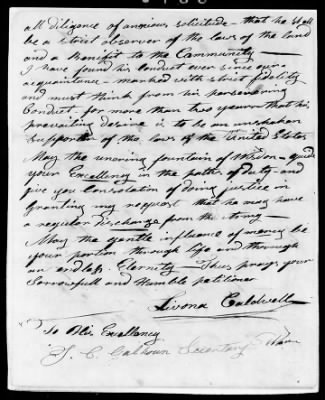 all diligence of anxious solicitude – that he shall
be a strict observer of the laws of the land
and a benifit to the Cammunity –
I have found his Conduct ever since our
acquaintance – marked with strict fidelity
and must think from his persevering
Conduct for more than two years that his
prevailing desire is to be an unshaken
supporter of the laws of the United States
May the unering fountain of Wisdom – guide
your Excellency in the paths of duty – and
give you Consolation of doing justice in
Granting my request that he may have
a regular discharge from the Army –
May the gentle influence of mercy be
your portion through life and through
an endless Eternity – Thus prays your
Sorrowfull and Humble petitioner
Caldwell
To His Excellancy
J. C. Calhoun Secretary